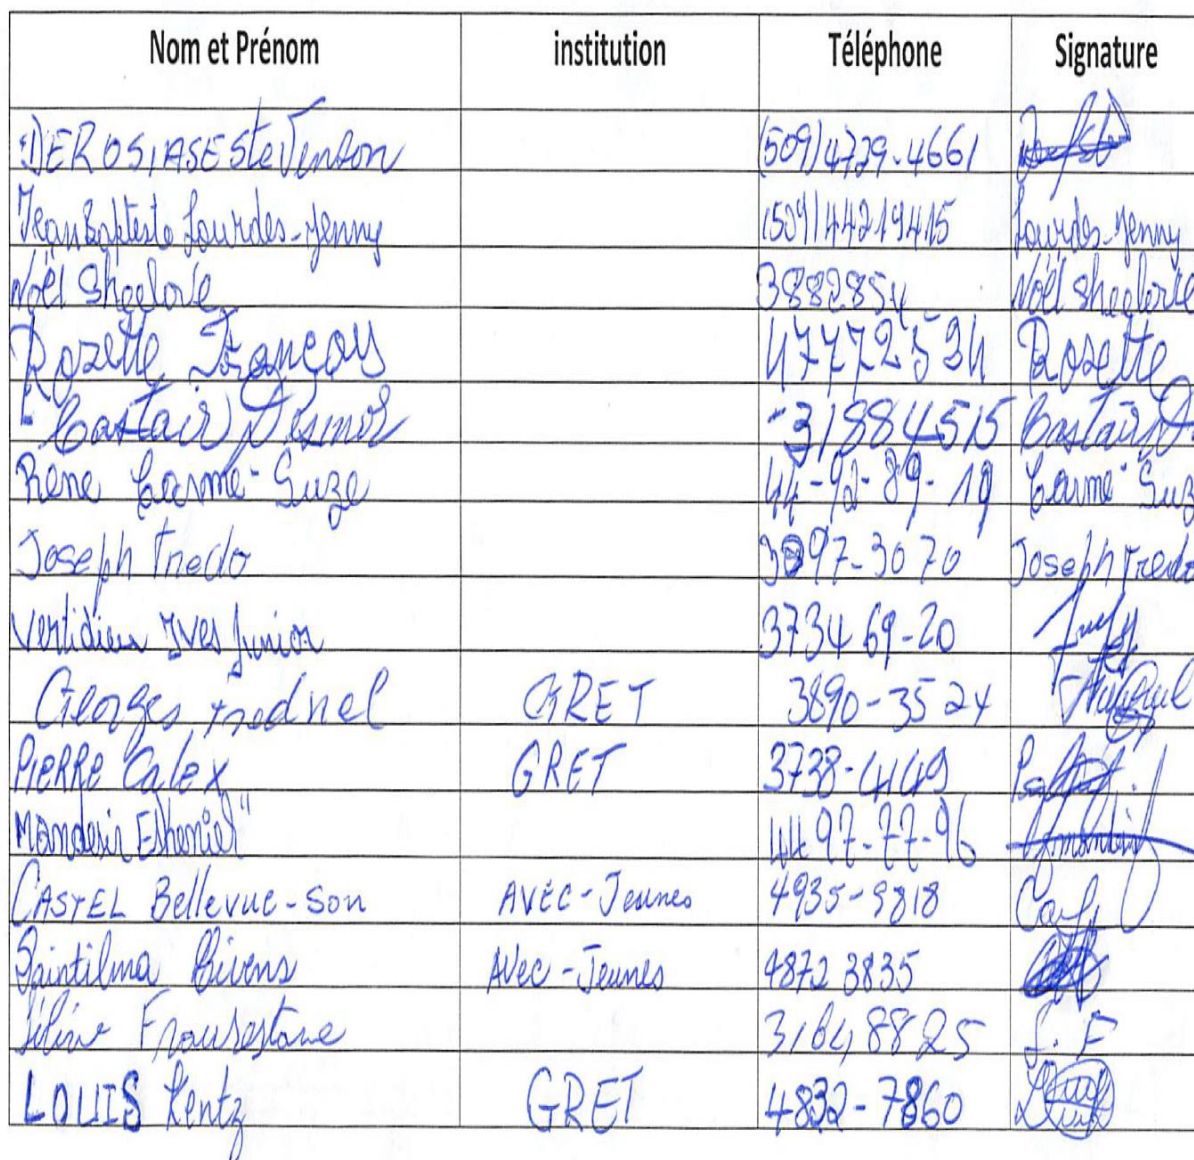 Nom et Prénom institution Téléphone Signature
DEROSIASE Stevenson (509)4729-4661
Jean Baptiste Lourdes-Jenny (509)44219415 Lourdes-Jenny
Noël Sheelove 3882854 Noël Sheelove
Rozette François 47772534 Rosette
Castair Disnor -31884515 Castair D
Rene Carme-Suze 44-92-89-19 Carme-Suz
Joseph Fredo 3097-3070 Joseph Fredo
Vertidieu Yves Junior 373469-20
Georges Frednel GRET 3890-3524
PIERRE Calex GRET 3738-4449
Mondesir Esheniel" 4497-77-96
CASTEL Bellevue-Son AVEC-Jeunes 4935-5818
Saintilma Bivens AVec-Jeunes 4872 3835
31648825 F
LOUIS Kentz GRET 4832-7860